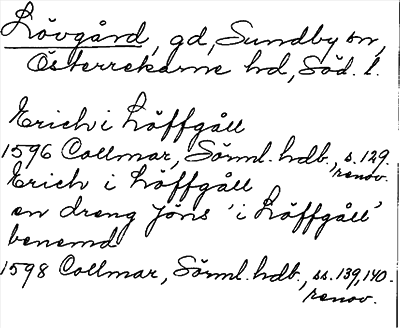 Lövgård, gd, Sundby sn,
Österrekarne hd, Söd. l.
Erich i Löffgåll
1596 Collmar, Sörml. hdb., s. 129.
renov.
Erich i Löffgåll
en dreng Jöns 'i Löffgåll'
benemd
1598 Collmar, Sörml. hdb., ss. 139, 140.
renov.